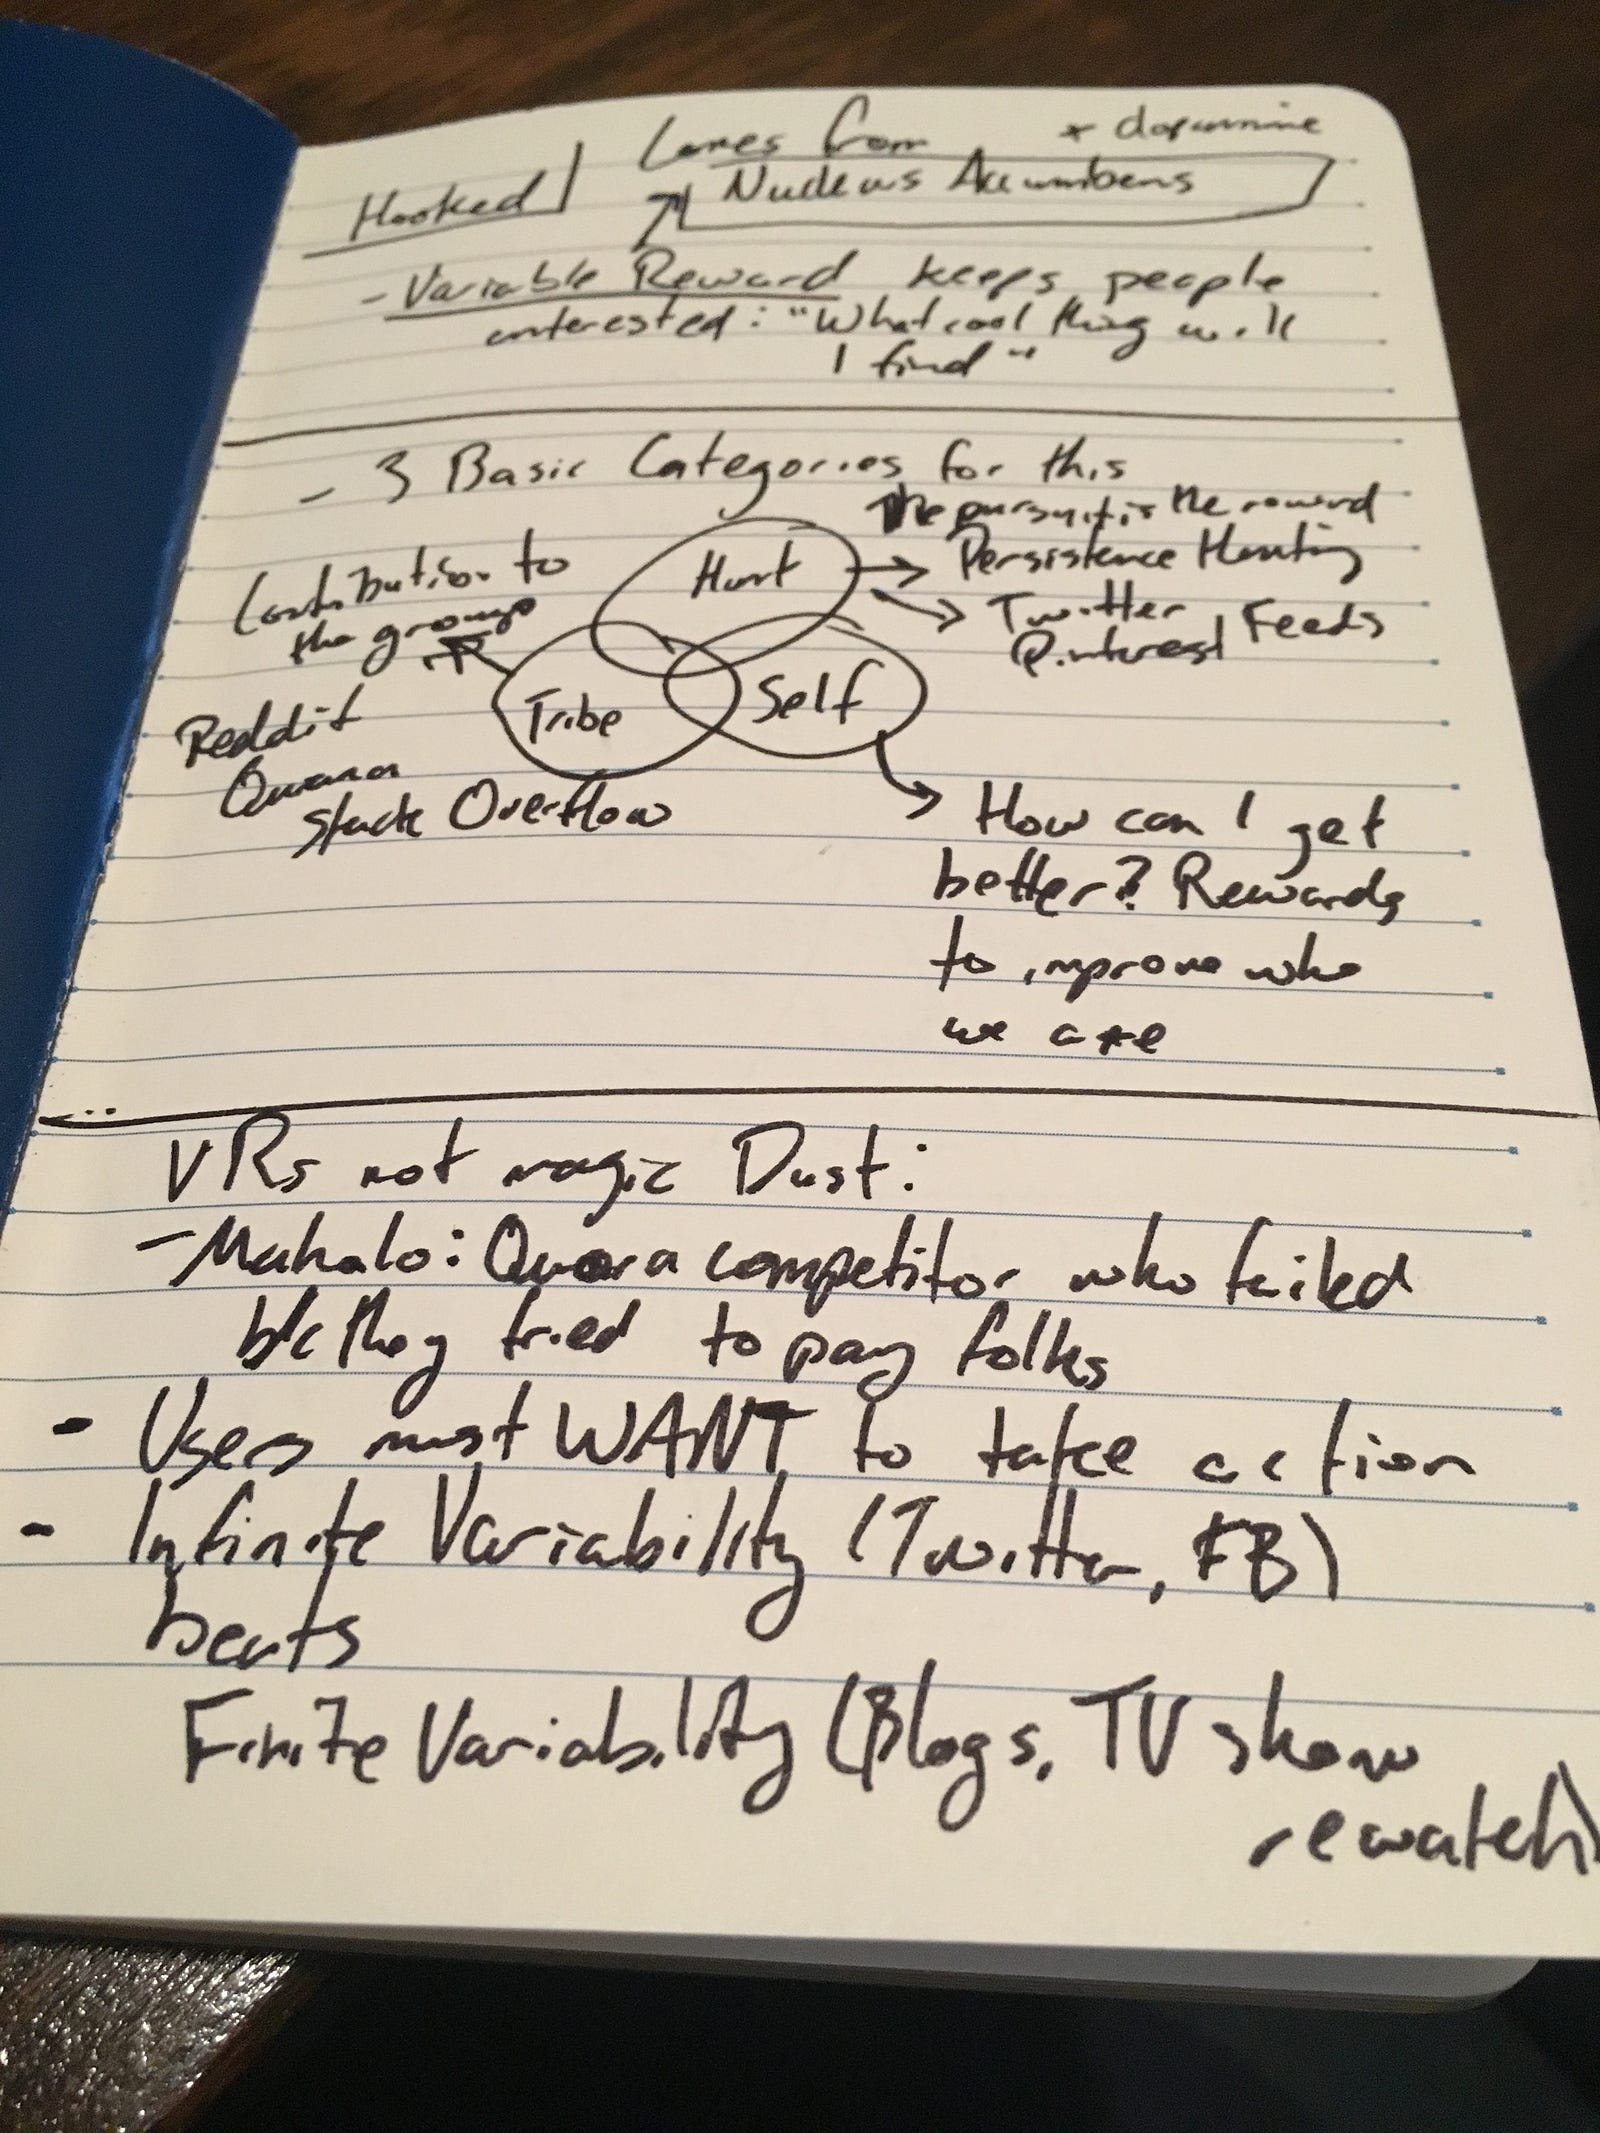 Hooked
Comes from
* dopamine
Nucleus Accumbens
- Variable Reward keeps people
interested: "What cool thing will
I find"
- 3 Basic Categories for this
The pursuit is the reward
Hunt
Persistence Hunting
Twitter
Pinterest Feeds
Contribution to
the group
Tribe
Self
Reddit
Quora
Stack Overflow
How can I get
better? Rewards
to improve who
we are
VRs not magic Dust:
- Mahalo: Quora competitor who failed
b/c they tried to pay folks
- Users must WANT to take action
- Infinite Variability (Twitter, FB)
beats
Finite Variability (Blogs, TV show
rewatch)